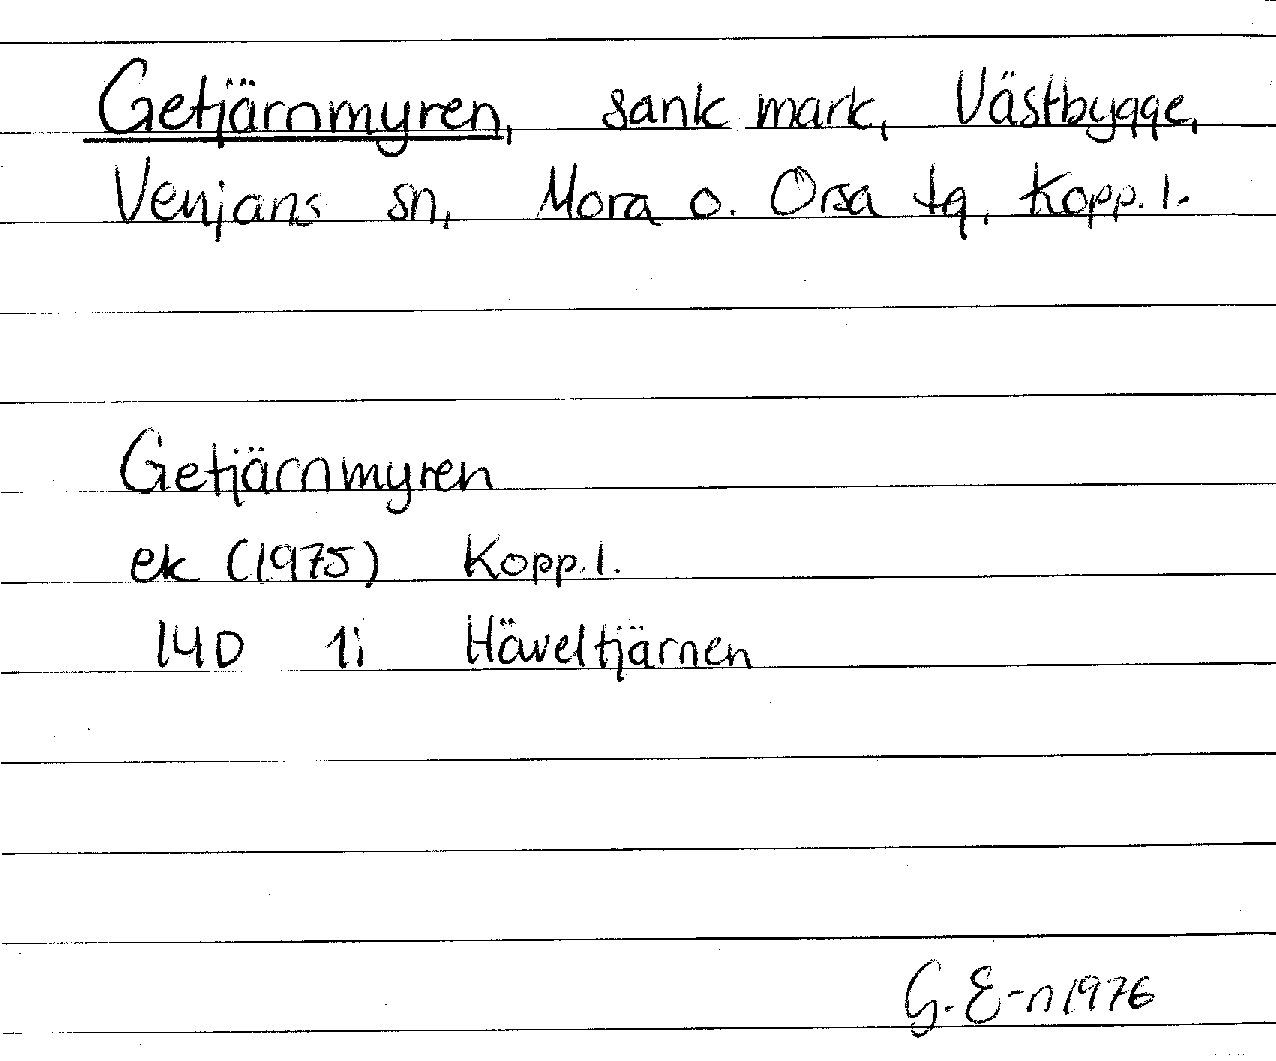 Getjärnmyren, sank mark, Västbygge,
Venjans sn, Mora o. Orsa tg, Kopp. l.
Getjärnmyren
ek (1975) Kopp. l.
14D 1i Häveltjärnen
G. E-n 1976